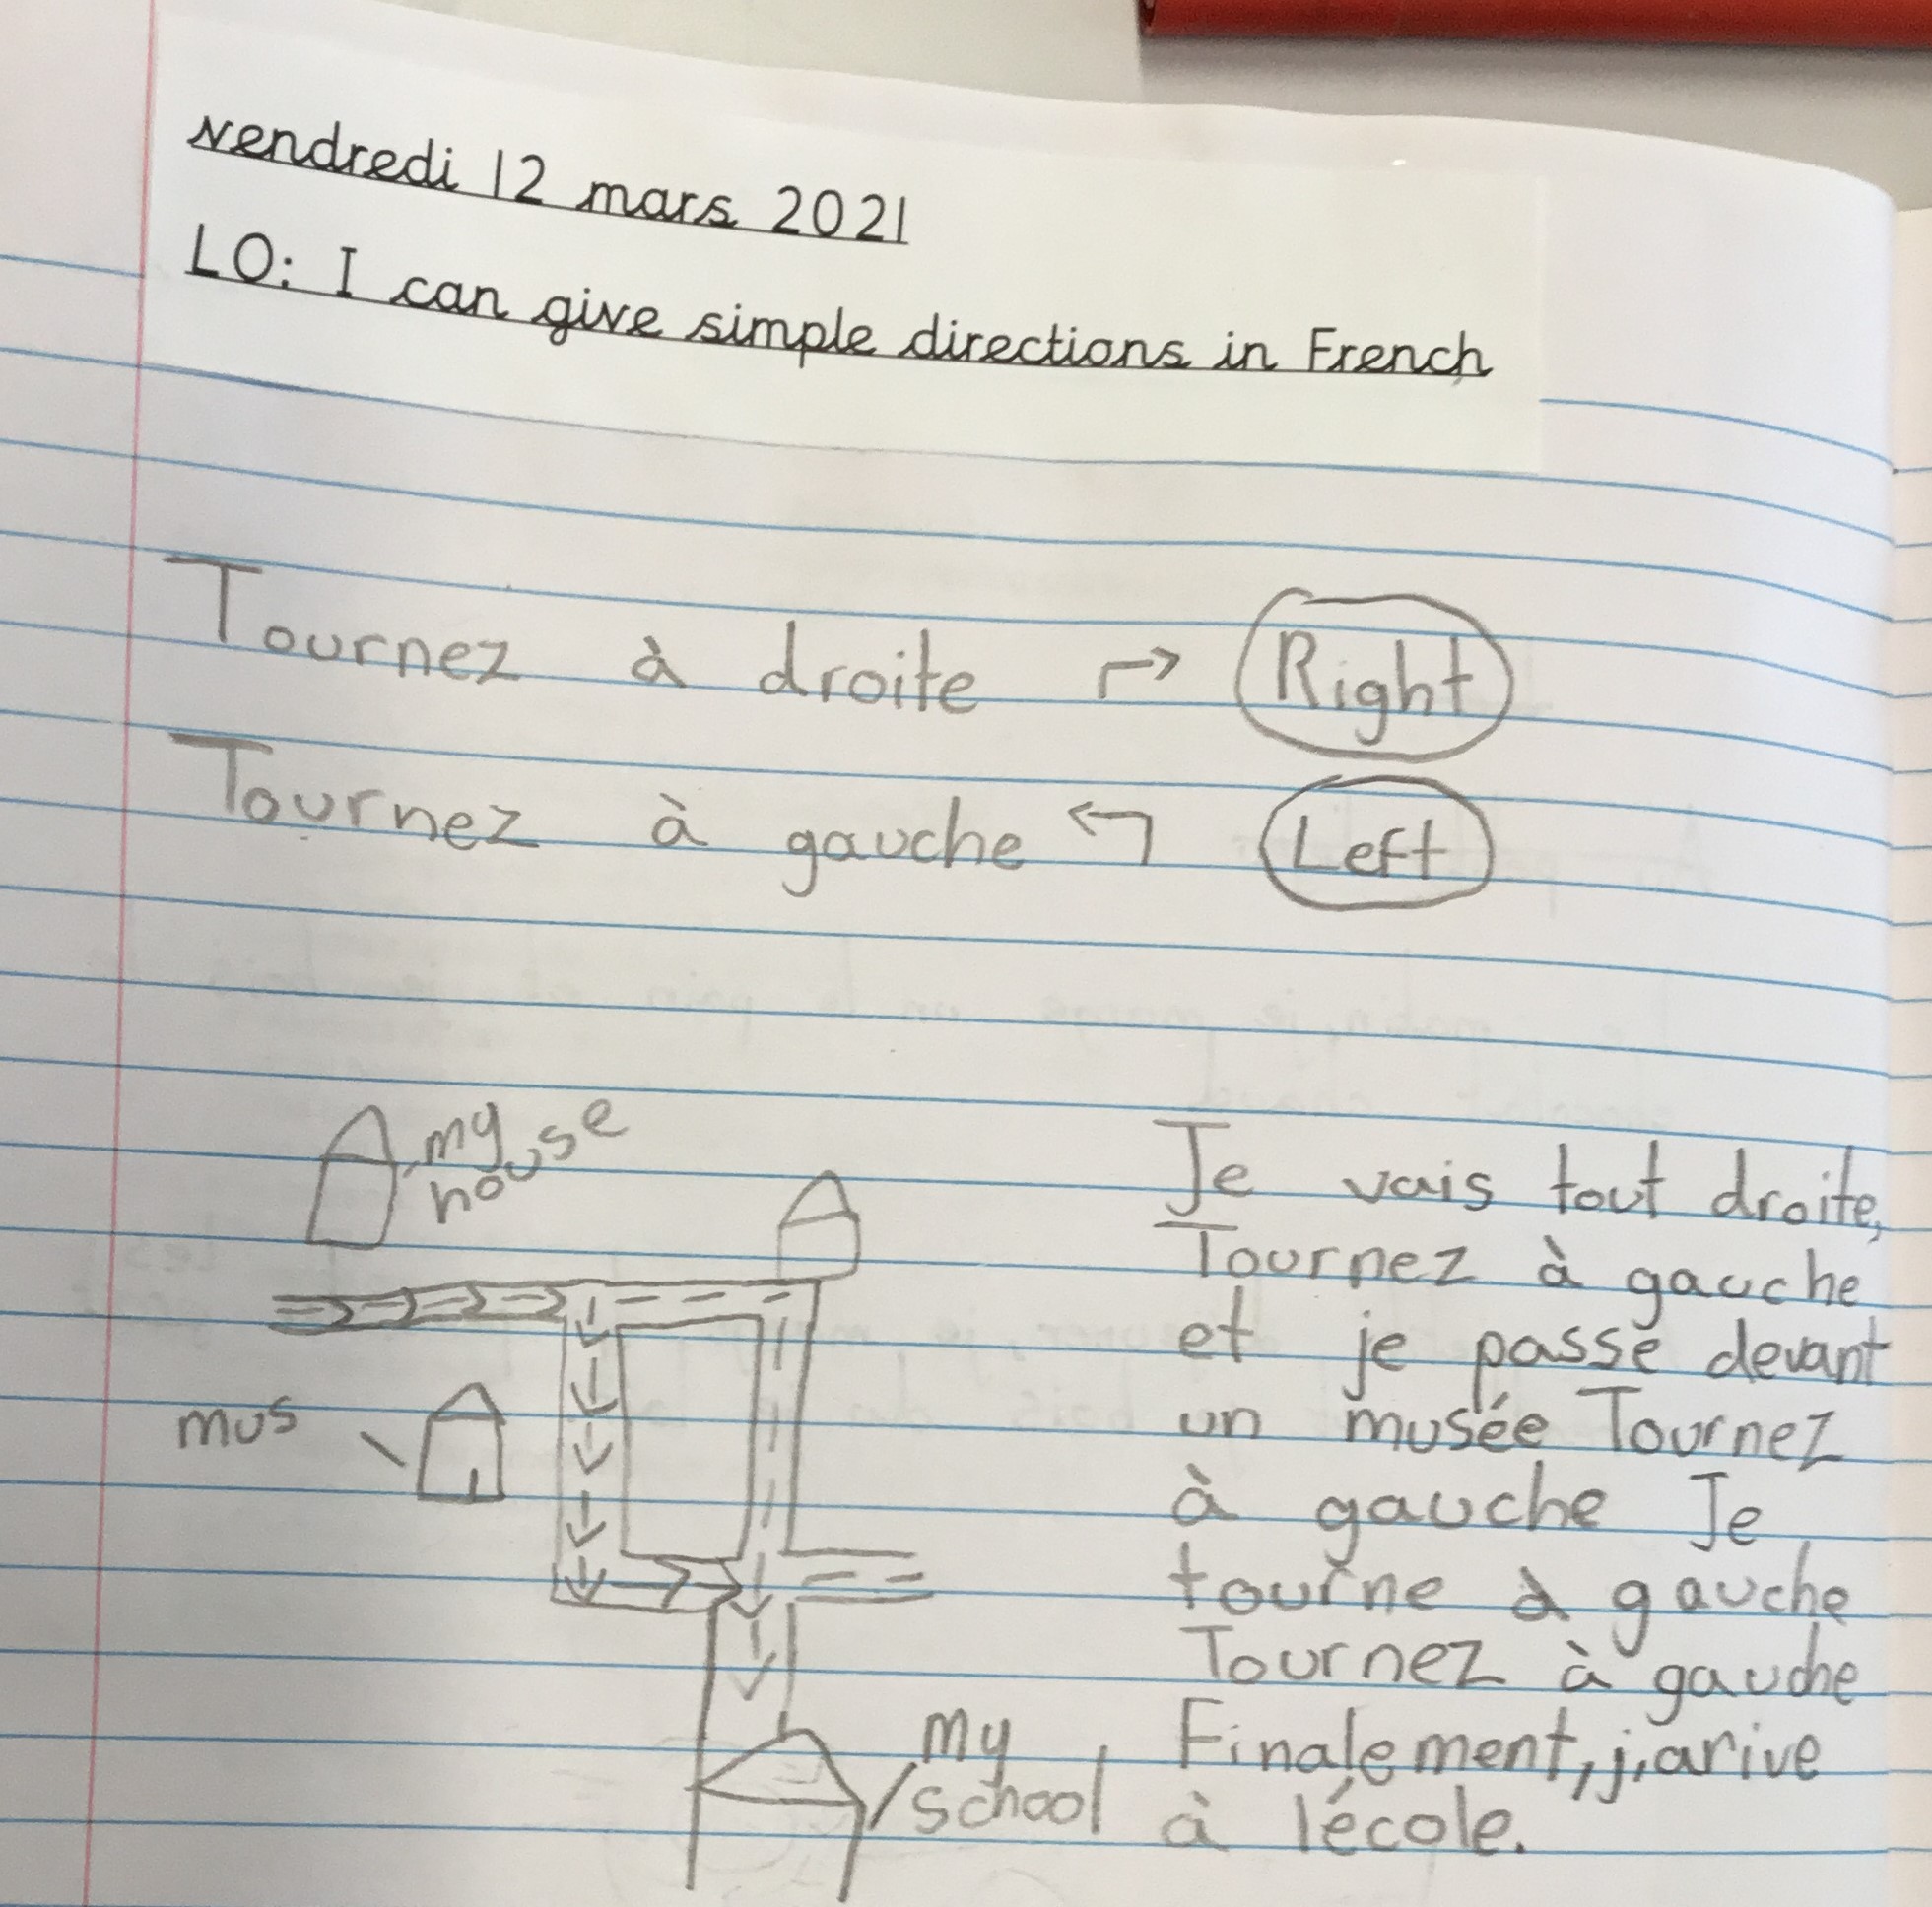 vendredi 12 mars 2021
LO: I can give simple directions in French
Tournez à droite Right
Tournez à gauche Left
my
house
mus
my
school
Je vais tout droite,
Tournez à gauche
et je passe devant
un musée Tournez
à gauche Je
tourne à gauche
Tournez à gauche
Finalement, j,arive
à lécole.